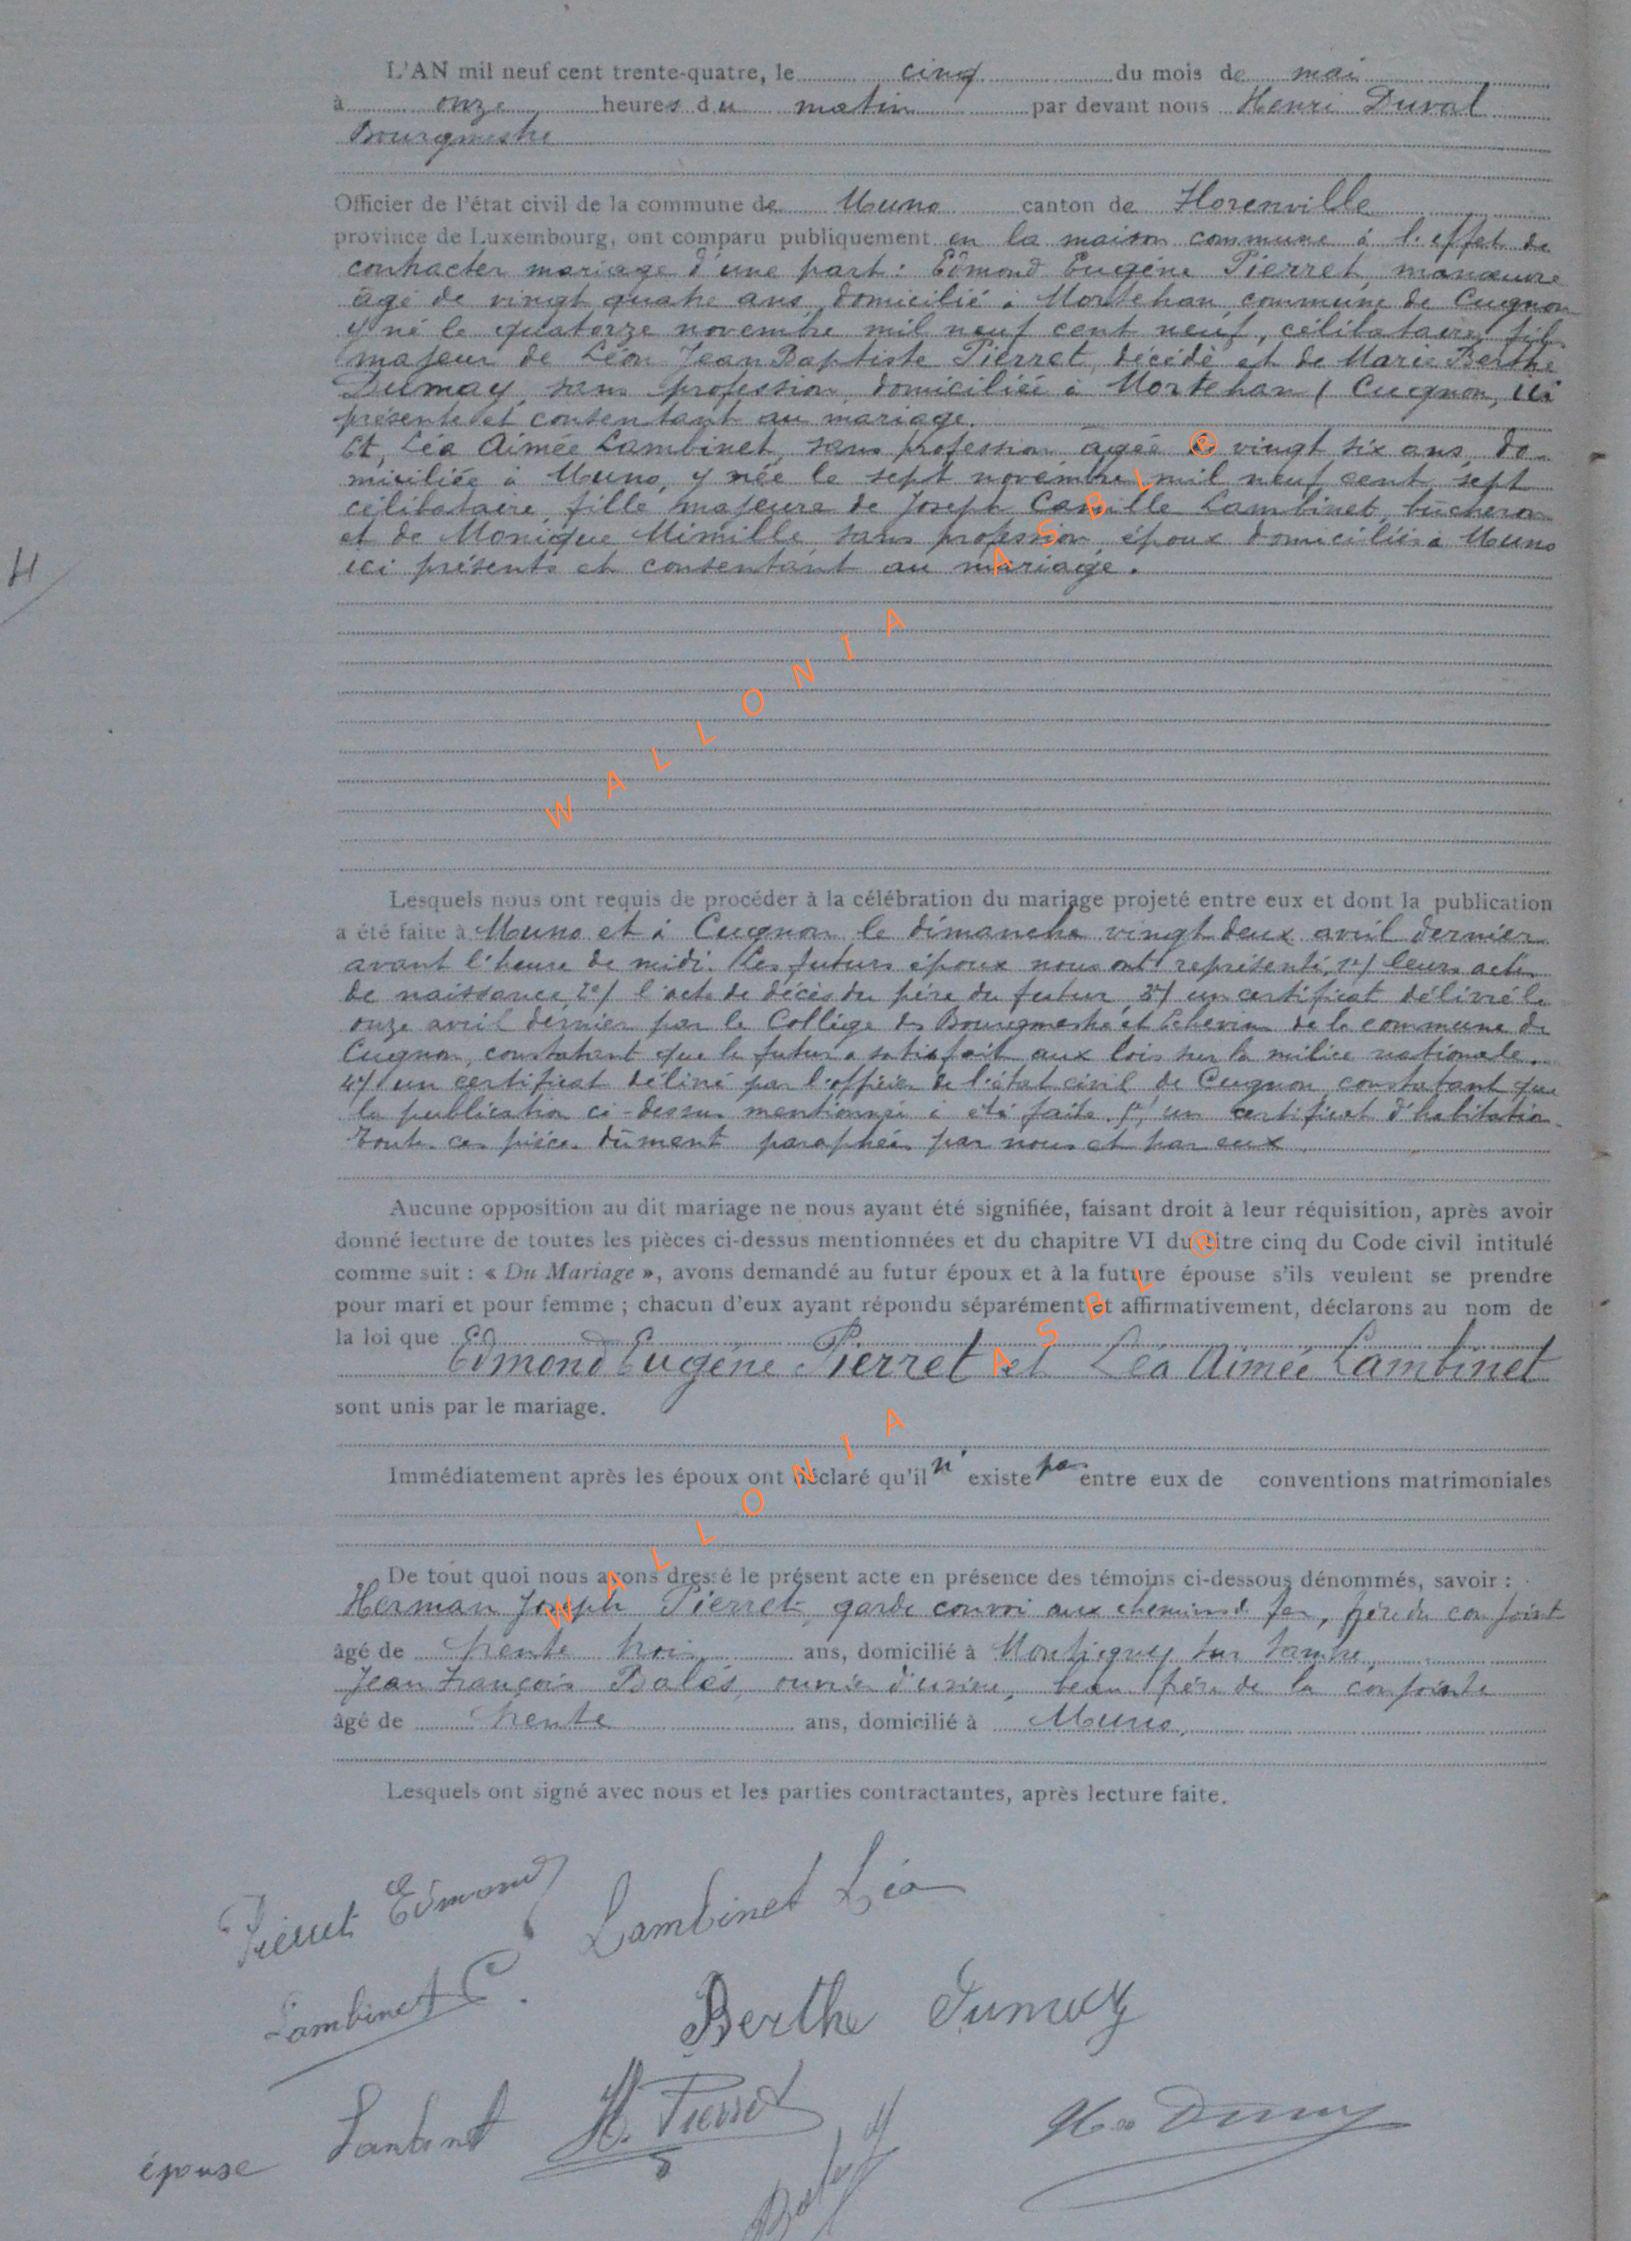 L'AN mil neuf cent trente-quatre, le cinq du mois de mai
à onze heures du matin par devant nous Henri Duval
Bourgmestre
Officier de l'état civil de la commune de Muno canton de Florenville
province de Luxembourg, ont comparu publiquement en la maison commune à l'effet de
contracter mariage d'une part : Edmond Eugène Pierret, manœuvre
âgé de vingt quatre ans, domicilié à Mortehan, commune de Cugnon
y né le quatorze novembre mil neuf cent neuf, célibataire, fils
majeur de Léon Jean Baptiste Pierret, décédé et de Marie Berthe
Dumay, sans profession, domiciliée à Mortehan / Cugnon, ici
présente et consentant au mariage.
Et, Léa Aimée Lambinet, sans profession âgée de vingt six ans, do-
miciliée à Muno, y née le sept novembre mil neuf cent sept
célibataire, fille majeure de Joseph Camille Lambinet, bûcheron
et de Monique Mimille, sans profession, époux domiciliés à Muno
ici présents et consentant au mariage.
H
WALLONIA ASBL ®
Lesquels nous ont requis de procéder à la célébration du mariage projeté entre eux et dont la publication
a été faite à Muno et à Cugnon le dimanche vingt deux avril dernier
avant l'heure de midi. Les futurs époux nous ont représenté, 1°/ leurs actes
de naissance, 2°/ l'acte de décès du père du futur, 3°/ un certificat délivré le
onze avril dernier par le Collège des Bourgmestre et Echevins de la commune de
Cugnon, constatant que le futur a satisfait aux lois sur la milice nationale.
4°/ un certificat délivré par l'officier de l'état civil de Cugnon constatant que
la publication ci-dessus mentionnée a été faite. 5°/ un certificat d'habitation
toutes ces pièces dûment paraphées par nous et par eux
Aucune opposition au dit mariage ne nous ayant été signifiée, faisant droit à leur réquisition, après avoir
donné lecture de toutes les pièces ci-dessus mentionnées et du chapitre VI du titre cinq du Code civil intitulé
comme suit : « Du Mariage », avons demandé au futur époux et à la future épouse s'ils veulent se prendre
pour mari et pour femme ; chacun d'eux ayant répondu séparément et affirmativement, déclarons au nom de
la loi que
Edmond Eugène Pierret et Léa Aimée Lambinet
sont unis par le mariage.
Immédiatement après les époux ont déclaré qu'il n'existe pas entre eux de conventions matrimoniales
WALLONIA ASBL ®
De tout quoi nous avons dressé le présent acte en présence des témoins ci-dessous dénommés, savoir :
Herman Joseph Pierret, garde convoi aux chemins de fer, frère du conjoint
âgé de trente trois ans, domicilié à Montigney sur Sambre,
Jean François Balés, ouvrier d'usine, beau frère de la conjointe
âgé de trente ans, domicilié à Muno,
Lesquels ont signé avec nous et les parties contractantes, après lecture faite.
Pierret Edmond Lambinet Léa
Lambinet C. Berthe Dumay
épouse Lambinet H. Pierret